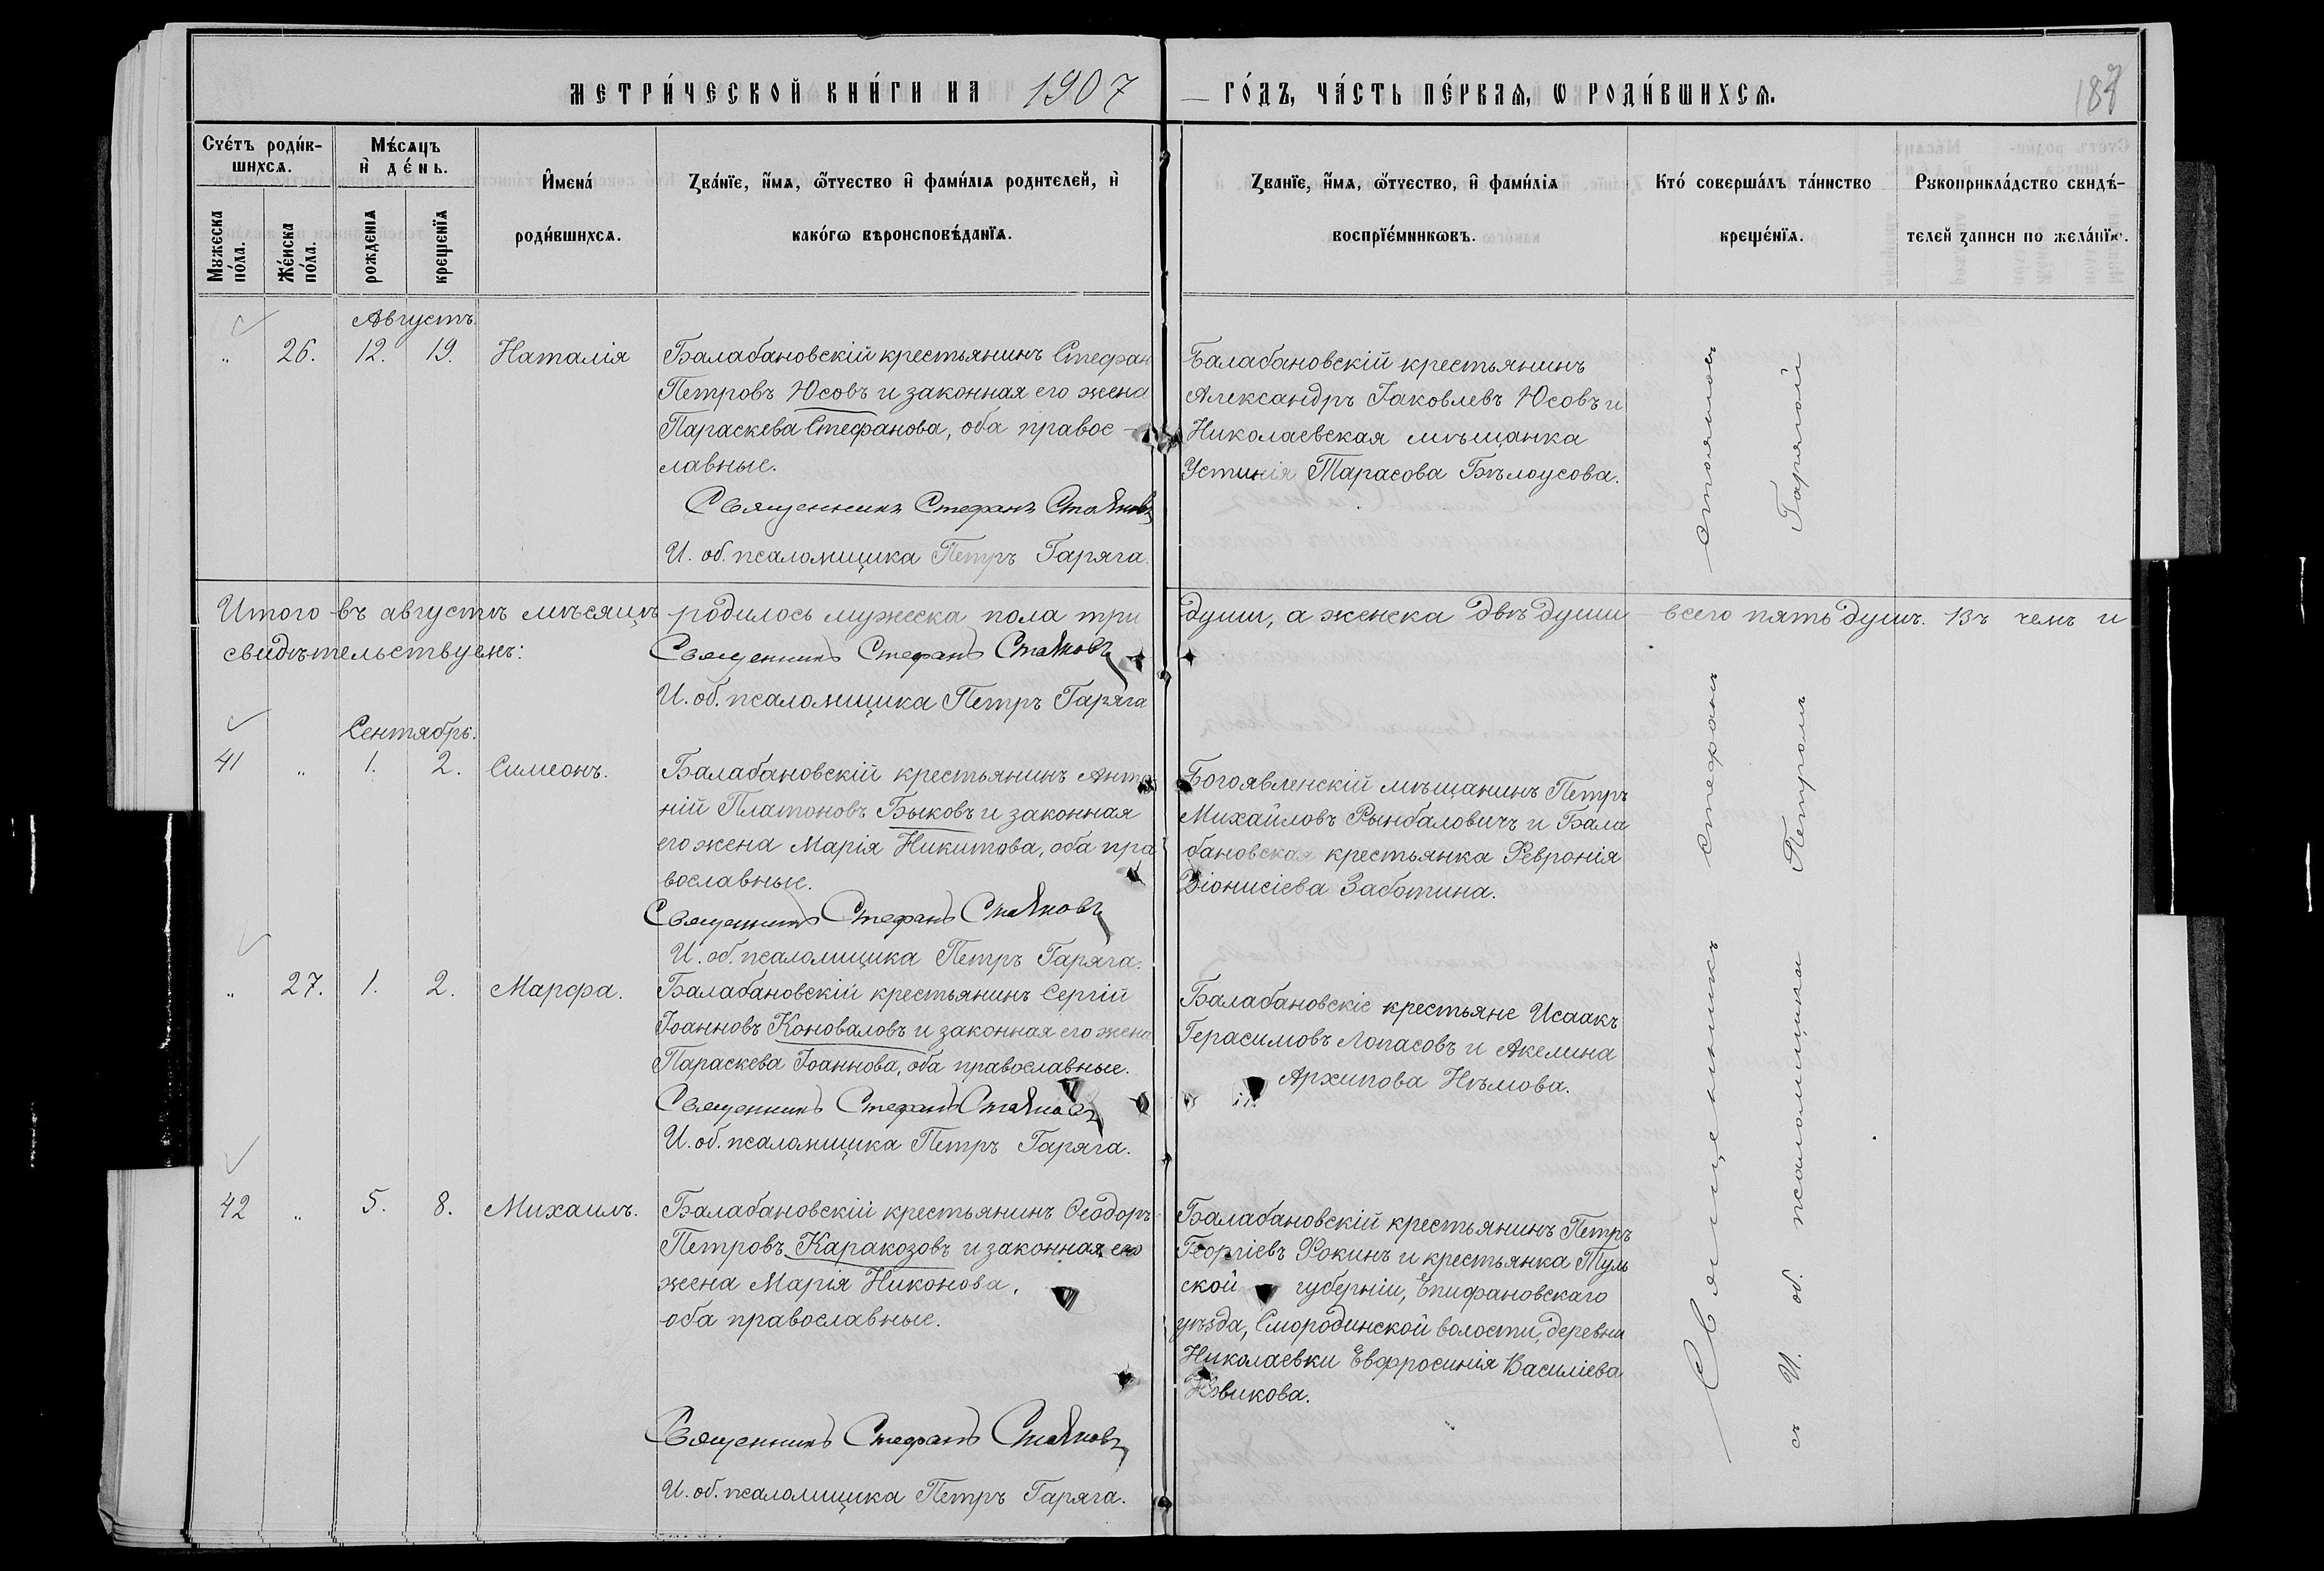 МЕТРИ́ЧЕСКОЙ КНИ́ГИ НА 1907
ГО́ДЪ, ЧА́СТЬ ПЕ́РВАѦ, Ѡ РОДИ́ВШИХСѦ.
187
Сче́тъ роди́в-
шихсѧ.
Мꙋжеска
по́ла.
Же́нска
по́ла.
Мѣ́сѧцъ
и҆ де́нь.
рожденїѧ
крещенїѧ
И҆мена́
роди́вшихсѧ.
Зва́нїе, и҆́мѧ, ѻ҆́тчество и҆ фами́лїѧ родителей, и҆
како́гѡ вѣроисповѣ́данїѧ.
Званїе, и҆́мѧ, ѻ҆́тчество, и҆ фами́лїѧ
воспрїе́мникѡвъ.
Кто́ соверша́лъ та́инство
креще́нїѧ.
Рꙋкоприкла́дство свидѣ́-
телей записи по жела́нїю.
Августъ.
" 26. 12. 19. Наталія
Балабановскій крестьянинъ Стефан
Петровъ Юсовъ и законная его жена
Параскева Стефанова, оба правос-
лавные.
Священникъ Стефанъ Стояновъ
И. об. псаломщика Петръ Гаряга.
Балабановскій крестьянинъ
Александръ Іаковлевъ Юсовъ и
Николаевская мѣщанка
Устинія Тарасова Бѣлоусова.
Итого въ августѣ мѣсяцѣ родилось мужеска пола три души, а женска двѣ души всего пять душъ. Въ чемъ и
свидѣтельствуемъ:
Священникъ Стефанъ Стояновъ
И. об. псаломщика Петръ Гаряга
Сентябрь.
41 " 1. 2. Симеонъ.
Балабановскій крестьянинъ Анто
ній Платоновъ Быковъ и законная
его жена Марія Никитова, оба пра
вославные.
Священникъ Стефанъ Стояновъ
И. об. псаломщика Петръ Гаряга.
Богоявленскій мѣщанинъ Петръ
Михайловъ Рынбаловичъ и Бала
бановская крестьянка Февронія
Діонисіева Заботина.
" 27. 1. 2. Марфа.
Балабановскій крестьянинъ Сергій
Іоанновъ Коноваловъ и законная его жена
Параскева Іоаннова, оба православные.
Священникъ Стефанъ Стояновъ
И. об. псаломщика Петръ Гаряга.
Балабановскіе крестьяне Исаакъ
Герасимовъ Лопасовъ и Акелина
Архипова Нѣмова.
42 " 5. 8. Михаилъ.
Балабановскій крестьянинъ Ѳеодоръ
Петровъ Каракозовъ и законная его
жена Марія Никонова,
оба православные.
Священникъ Стефанъ Стояновъ
И. об. псаломщика Петръ Гаряга.
Балабановскій крестьянинъ Петръ
Георгіевъ Фокинъ и крестьянка Туль
ской губерніи, Епифановскаго
уѣзда, Смородинской волости, деревни
Николаевки Евфросинія Василіева
Новикова.
Священникъ Стефанъ Стояновъ
съ И. об. псаломщика Петромъ Гарягой